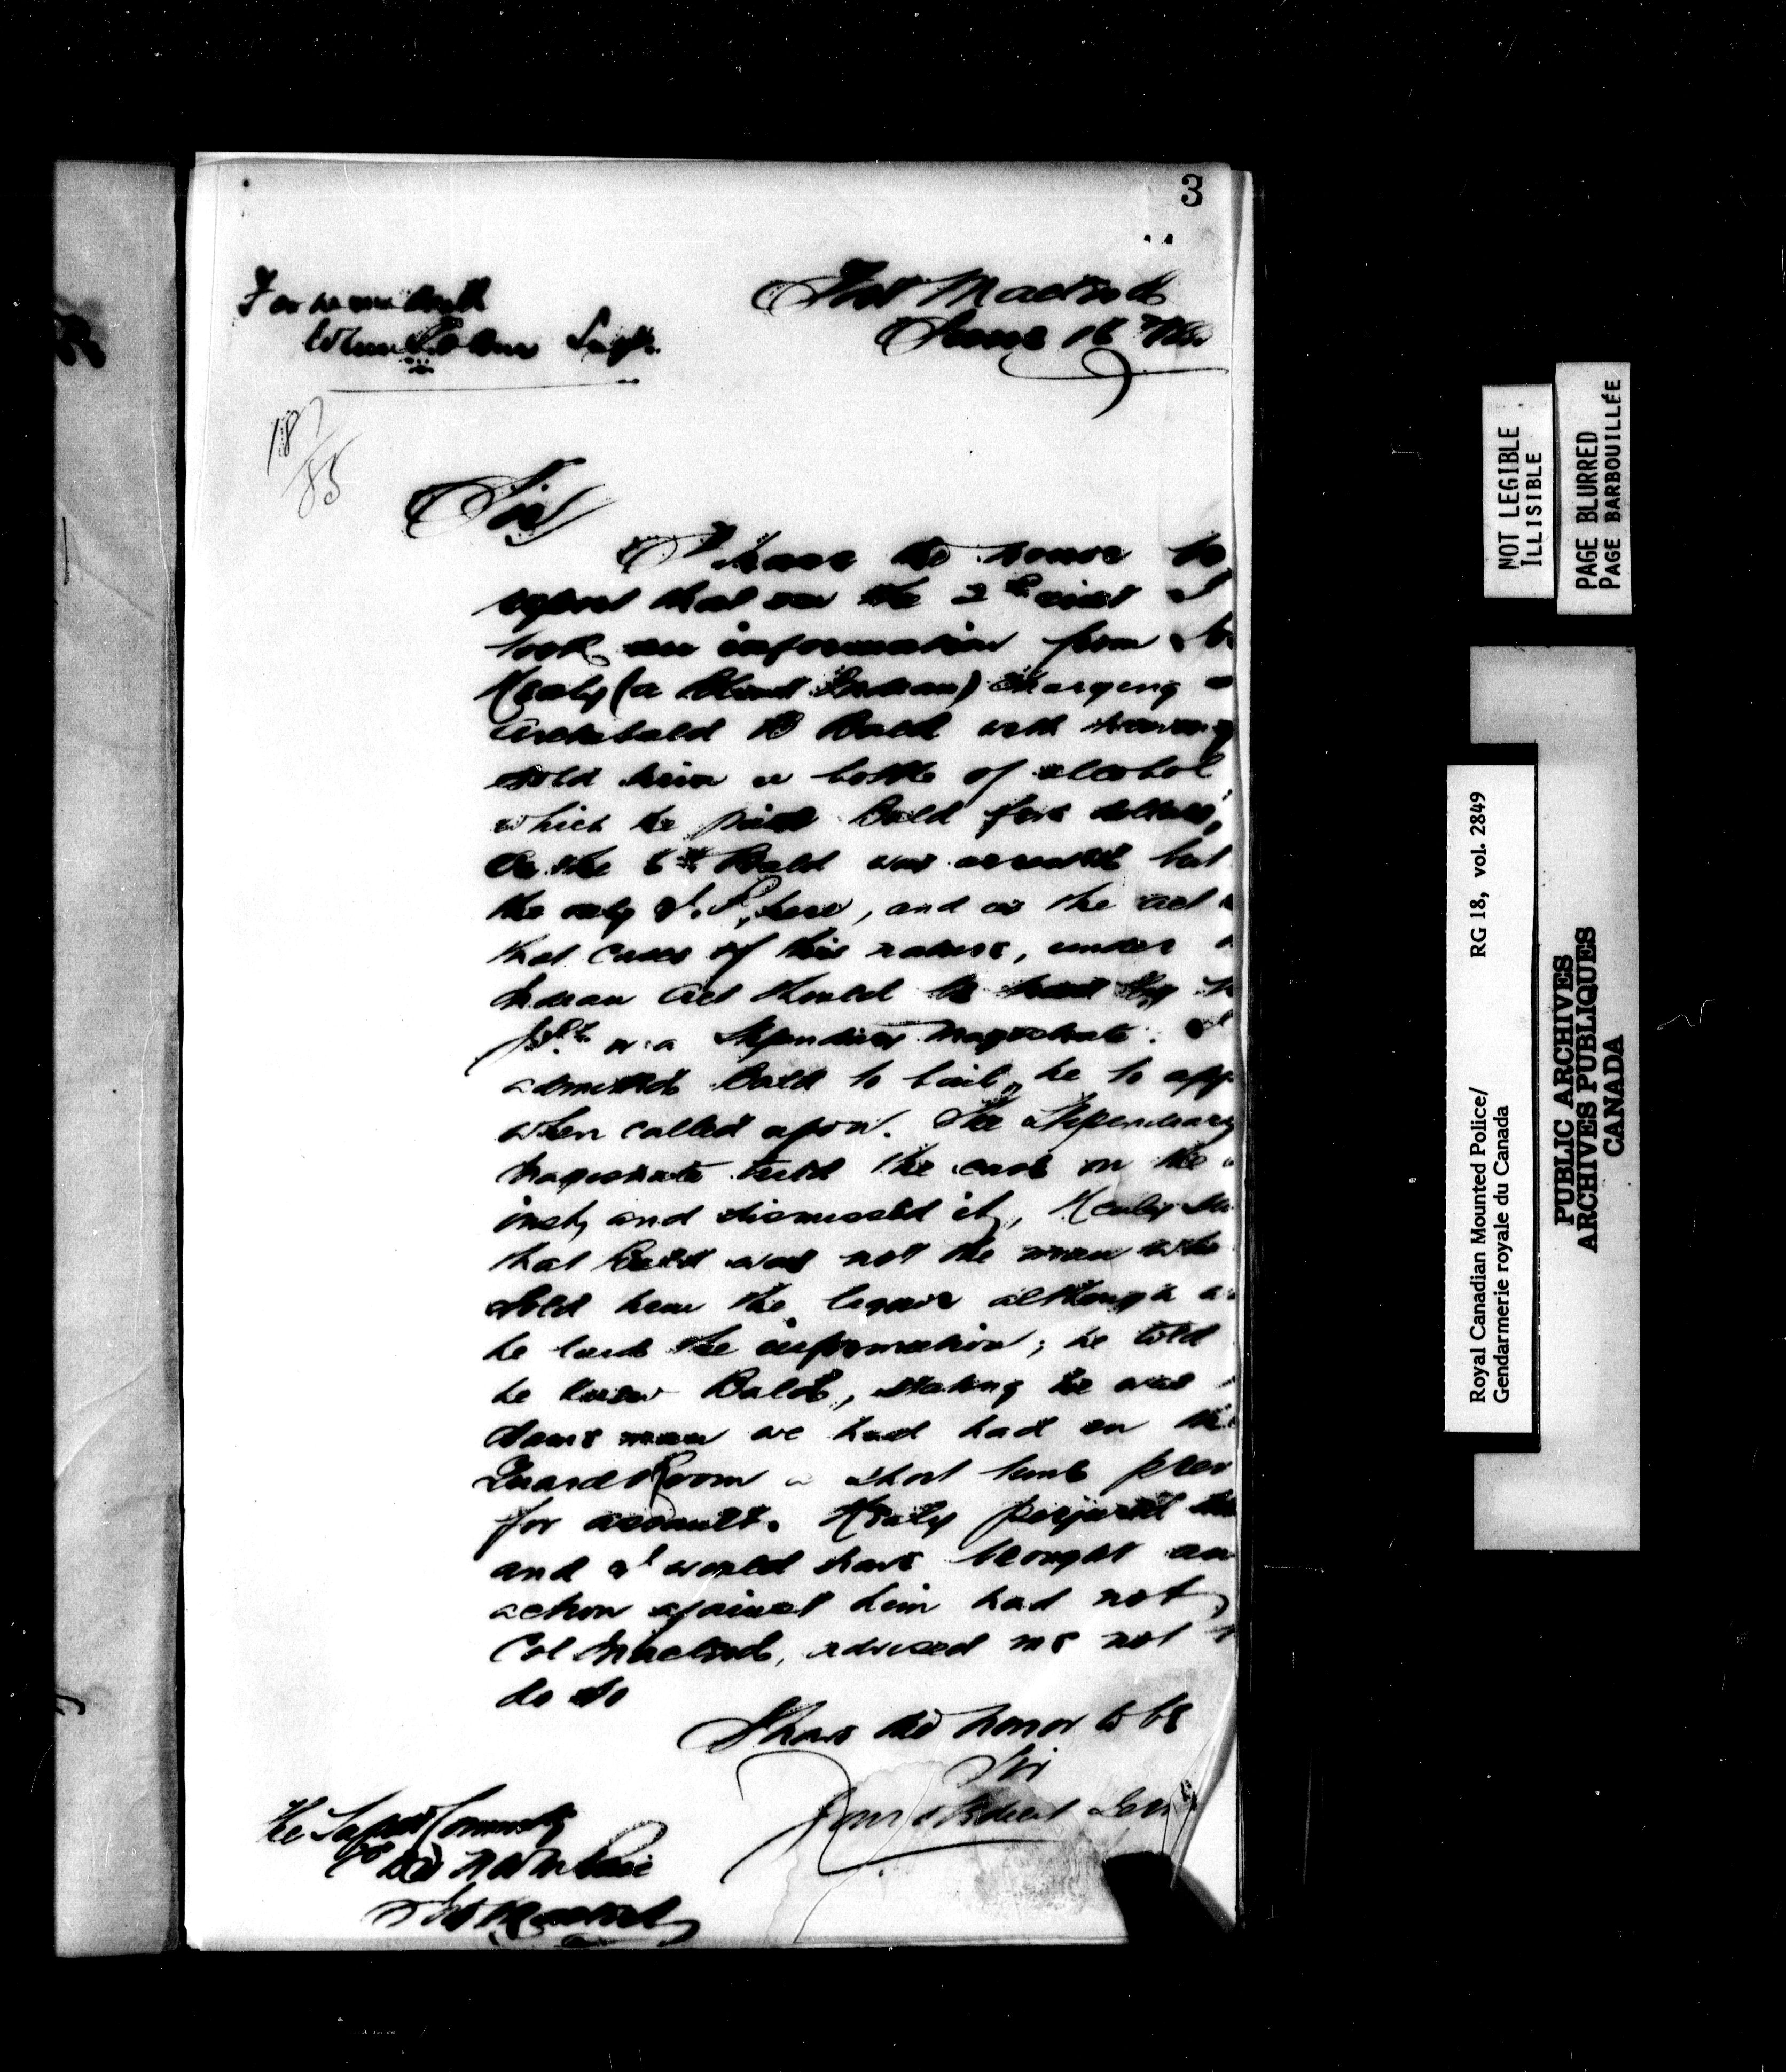 3
Fort Macleod
June 18
18/85
Sir
I have the honor to
report that on the 2nd inst I
took an information from
Healy (a Blood Indian) charging
Archibald B Bald with having
sold him a bottle of alcohol
which he paid Bald five dollars,
On the 6th Bald was arrested but
the only J.P. here, and as the act
that cases of this nature, under
Indian Act should be heard by
J.P. or a Stipendiary Magistrate. I
admitted Bald to bail, he to app
when called upon. The Stipendiary
Magistrate tried the case on the
inst, and dismissed it, Healy
that Bald was not the man who
sold him the liquor although
he laid the information; he told
he knew Bald, stating he was
same man we had had in the
Guard Room a short time prev
for assault. Healy perjured
and I would have brought an
action against him had not
Col Macleod, advised me not
do so
I have the honor to be
Sir
Your Obedient
The Supdt Commdg
N W M Police
Fort Macleod
NOT LEGIBLE
ILLISIBLE
PAGE BLURRED
PAGE BARBOUILLÉE
Royal Canadian Mounted Police/ RG 18, vol. 2849
Gendarmerie royale du Canada
PUBLIC ARCHIVES
ARCHIVES PUBLIQUES
CANADA